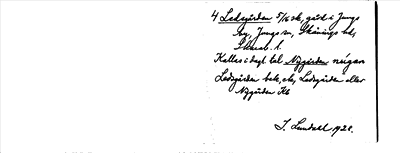 4 Ledsgården 5/16 sk, gård i Jungs
by, Jungs sn, Skånings hd,
Skarab. l.
Kallas i dagl. tal Nygården någon
Ledsgården bet. ch, Ledsgården eller
Nygården Kb
J. Lundahl 1928.